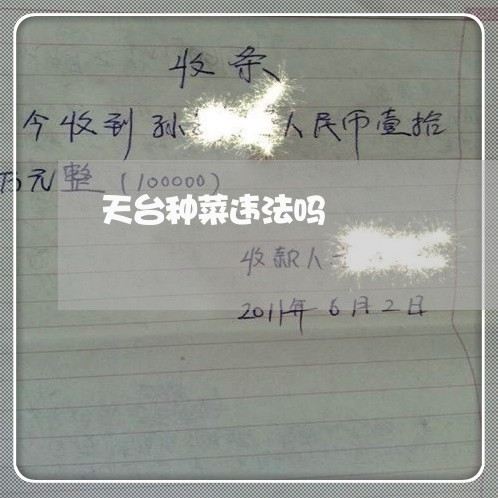 收条
今收到孙 人民币壹拾
万元整(100000)
天台种菜违法吗
收款人
2011年6月2日